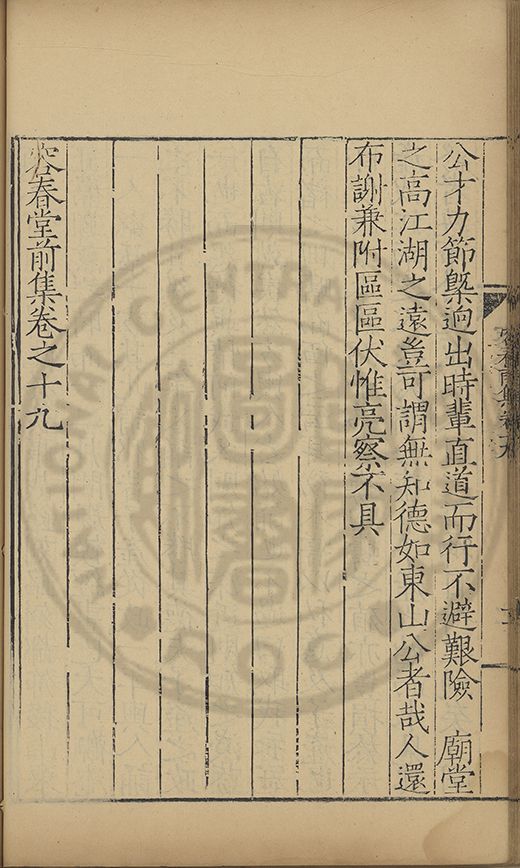 公才力節槩逈出時輩直道而行不避艱險　廟堂
之高江湖之遠豈可謂無知德如東山公者哉人還
布謝兼附區區伏惟亮察不具
容春堂前集卷之十九